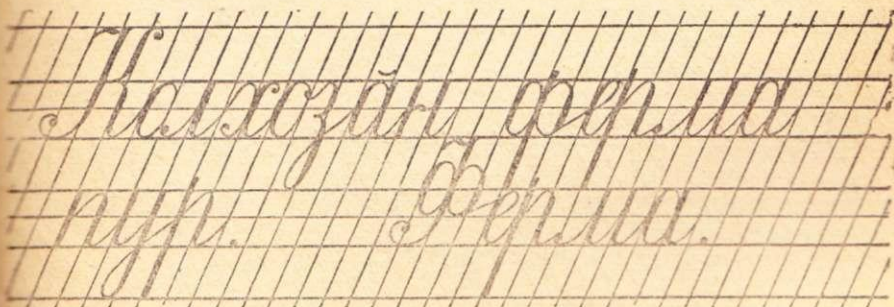 Колхозӑн ферма
пур. Ферма.